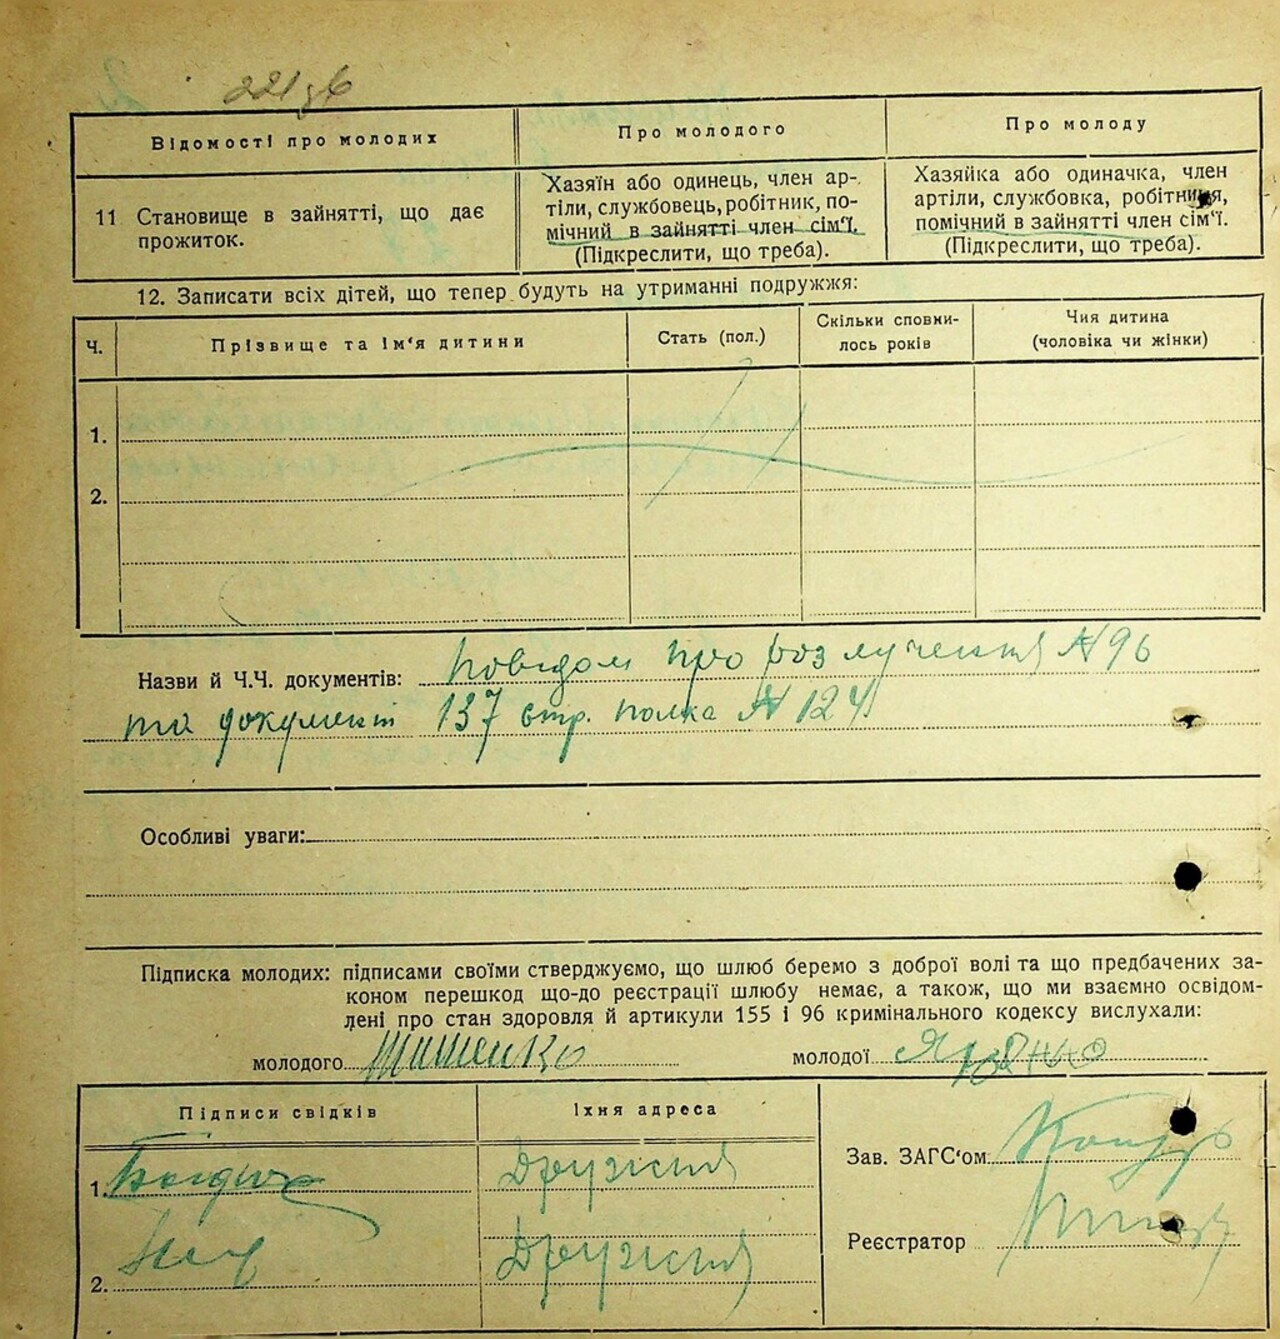 221зв
Відомості про молодих
Про молодого
Про молоду
11 Становище в зайнятті, що дає
прожиток.
Хазяїн або одинець, член ар-
тіли, службовець, робітник, по-
мічний в зайнятті член сім‘ї.
(Підкреслити, що треба).
Хазяйка або одиначка, член
артіли, службовка, робітниця,
помічний в зайнятті член сім‘ї.
(Підкреслити, що треба).
12. Записати всіх дітей, що тепер будуть на утриманні подружжя:
Ч.
Прізвище та ім‘я дитини
Стать (пол.)
Скільки сповни-
лось років
Чия дитина
(чоловіка чи жінки)
1.
2.
Назви й Ч.Ч. документів: Повідом про розлучення №96
та документ 137 стр. полка № 124
Особливі уваги:
Підписка молодих: підписами своїми стверджуємо, що шлюб беремо з доброї волі та що предбачених за-
коном перешкод що-до реєстрації шлюбу немає, а також, що ми взаємно освідом-
лені про стан здоровля й артикули 155 і 96 кримінального кодексу вислухали:
молодого Тишенко молодої
Підписи свідків
Їхня адреса
1.
Дружня
2.
Дружня
Зав. ЗАГС‘ом
Реєстратор